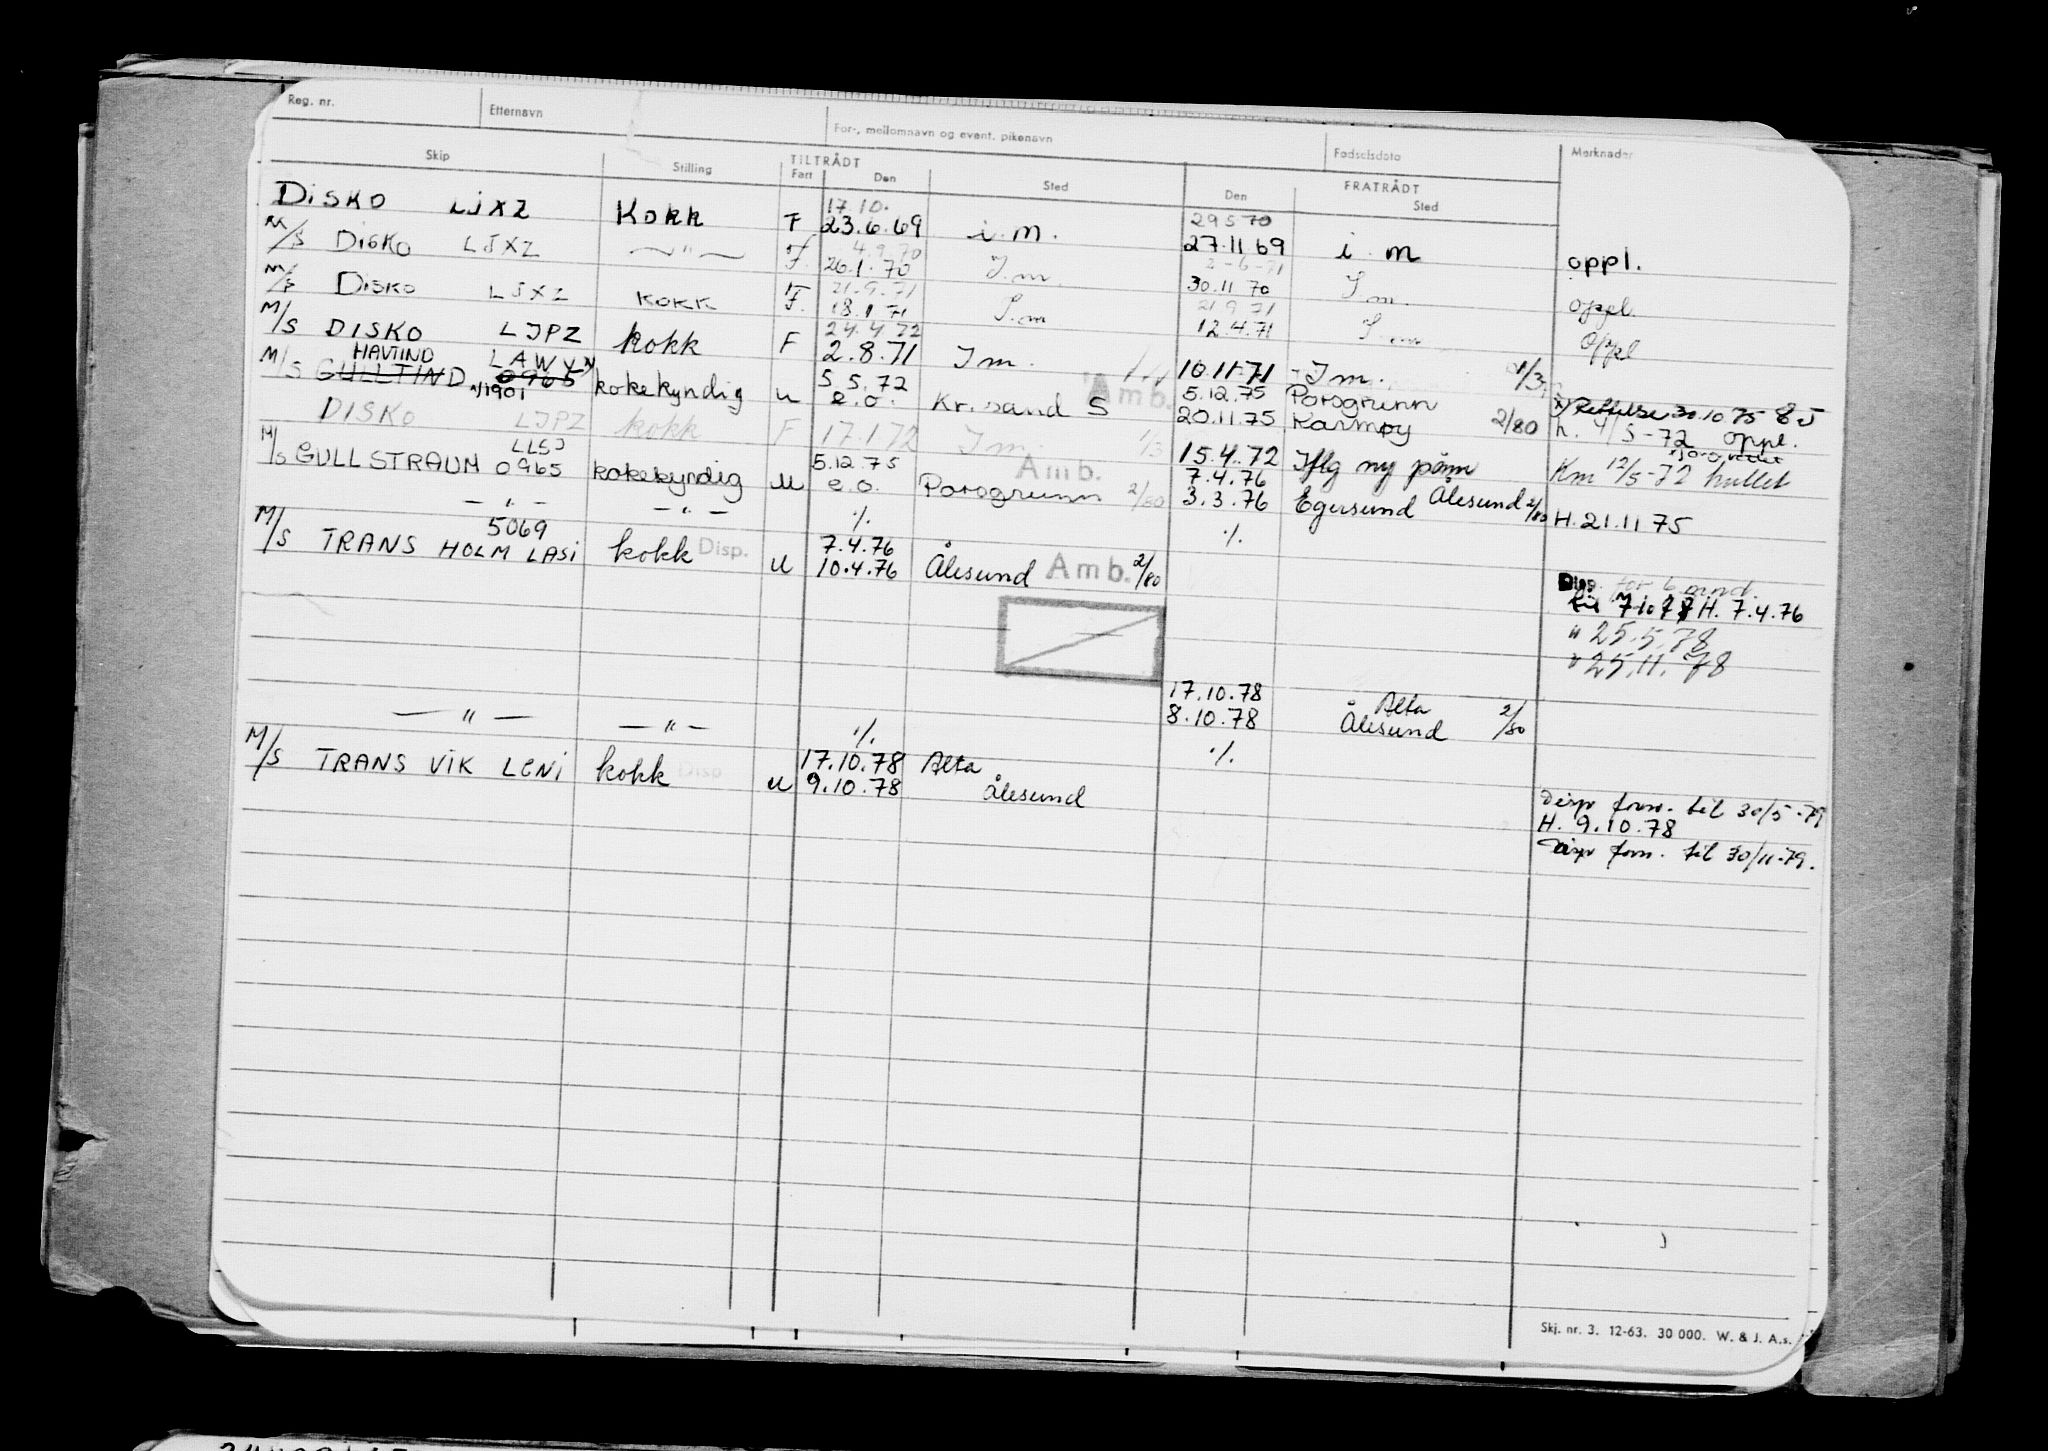 Reg. nr. Etternavn For-, mellomnavn og event. pikenavn Fødselsdato Merknader
Skip Stilling TILTRÅDT FRATRÅDT
Fart Den Sted Den Sted
17.10. 29 5 70
DISKO LJXZ Kokk F 23.6.69 i.m. 27.11 69 i.m oppl.
4.9.70 2-6-71
M/S DISKO LJXZ — " — F. 26.1.70 I.m. 30.11 70 I.m. oppl.
21.9.71 21 9 71
M/S DISKO LJXZ KOKK F. 18.1 71 I.m 12.4.71 I.m oppl
24.4 72
M/S DISKO LJPZ kokk F 2.8.71 Im. 10.11.71 Im. 1/3
HAVTIND LAWY 5.5.72 Amb. 5.12.75 Porsgrunn
M/S GULLTIND 0965 kokekyndig u e.o. Kr.sand S 20.11.75 Karmøy 2/80 x) Rettelse 30.10 75
1901
DISKO LJPZ kokk F 17.1 72 Im. 1/3 15.4.72 Iflg ny påm h. 4/5-72 oppl.
LLSJ 5.12.75 Amb. 7.4.76 Km 12/5-72 hullet
M/S GULLSTRAUM 0965 kokekyndig u e.o. Porsgrunn 2/80 3.3.76 Egersund Ålesund 2/80 H.21.11 75
— " — — " — %. %.
5069 7.4.76
M/S TRANS HOLM LASI kokk Disp. u 10.4.76 Ålesund Amb. 2/80
Disp. for 6 mnd.
til H. 7.4.76
" 25.5.78
" 25.11.78
17.10.78 Alta
8.10.78 Ålesund 2/80
— " — — " — %. %.
17.10.78 Alta
M/S TRANS VIK LENI kokk Disp u 9.10.78 Ålesund
Disp forn. til 30/5-79
H. 9.10.78
Disp forn. til 30/11-79.
Skj. nr. 3. 12-63. 30 000. W. & J. A.s.